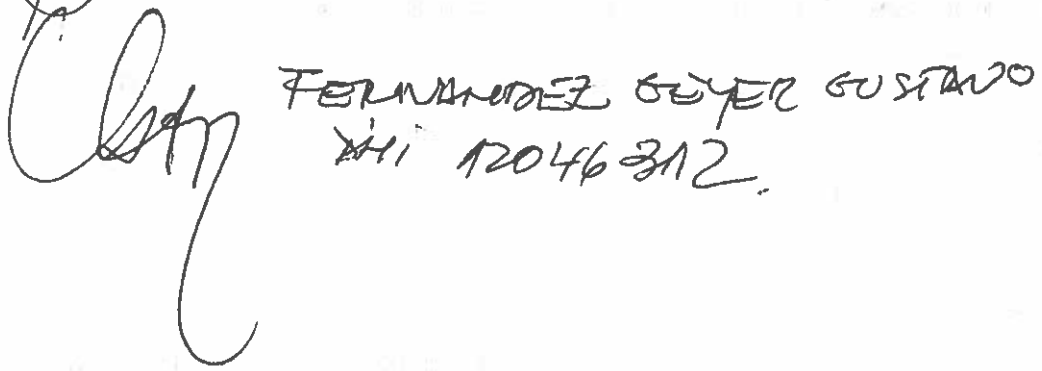 FERNANDEZ GEYER GUSTAVO
DNI 12046312.